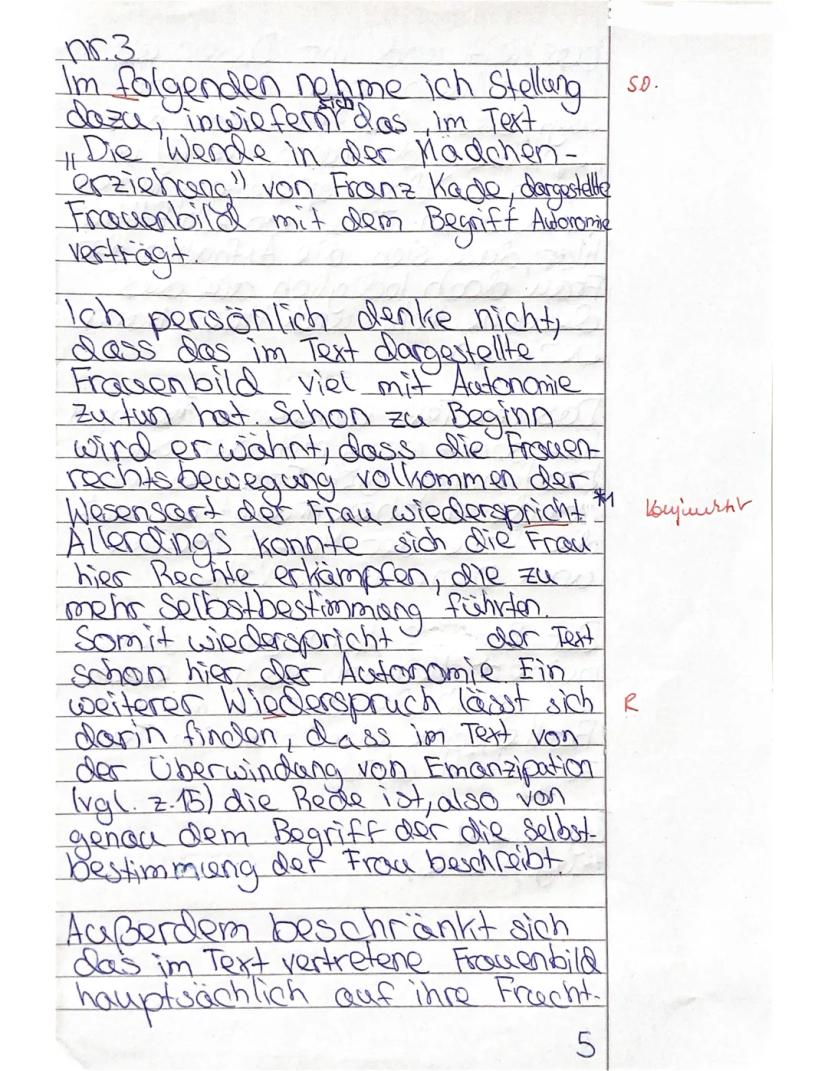 nr. 3
Im folgenden nehme ich Stellung
s.o.
dazu, inwiefern sich das, im Text
"Die Wende in der Mädchen-
erziehung" von Franz Kade, dargestellte
Frauenbild mit dem Begriff Autonomie
verträgt.
Ich persönlich denke nicht,
dass das im Text dargestellte
Frauenbild viel mit Autonomie
zu tun hat. Schon zu Beginn
wird erwähnt, dass die Frauen-
rechtsbewegung volkommen der
Wesensart der Frau wiederspricht *1
Konjunktiv
Allerdings konnte sich die Frau
hier Rechte erkämpfen, die zu
mehr Selbstbestimmung führten.
Somit wiederspricht der Text
schon hier der Autonomie Ein
weiterer Wiederspruch lässt sich
R
darin finden, dass im Text von
der Überwindung von Emanzipation
(vgl. z.15) die Rede ist, also von
genau dem Begriff der die Selbst-
bestimmung der Frau beschreibt.
Außerdem beschränkt sich
das im Text vertretene Frauenbild
hauptsächlich auf ihre Frucht-
5